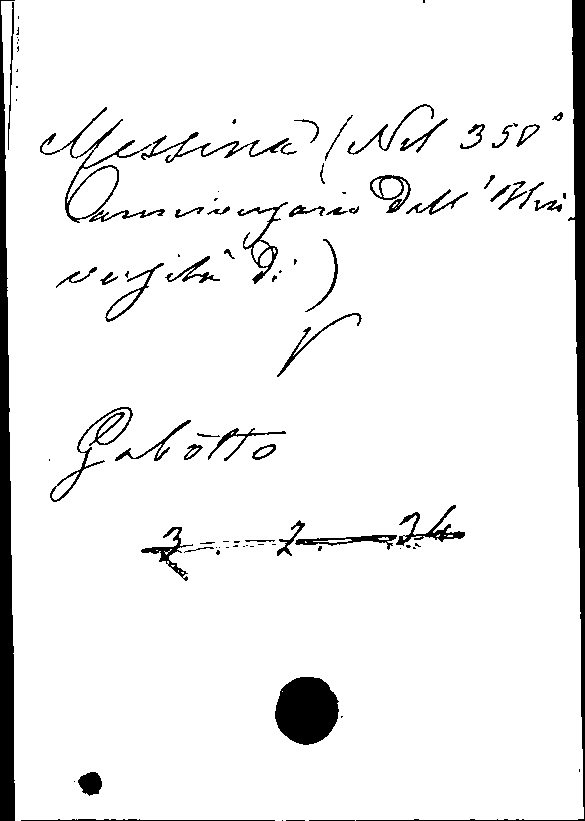 Messina (Nel 350°
anniversario dell'Uni-
versità di)
V
Gabotto
3 . 2. 34